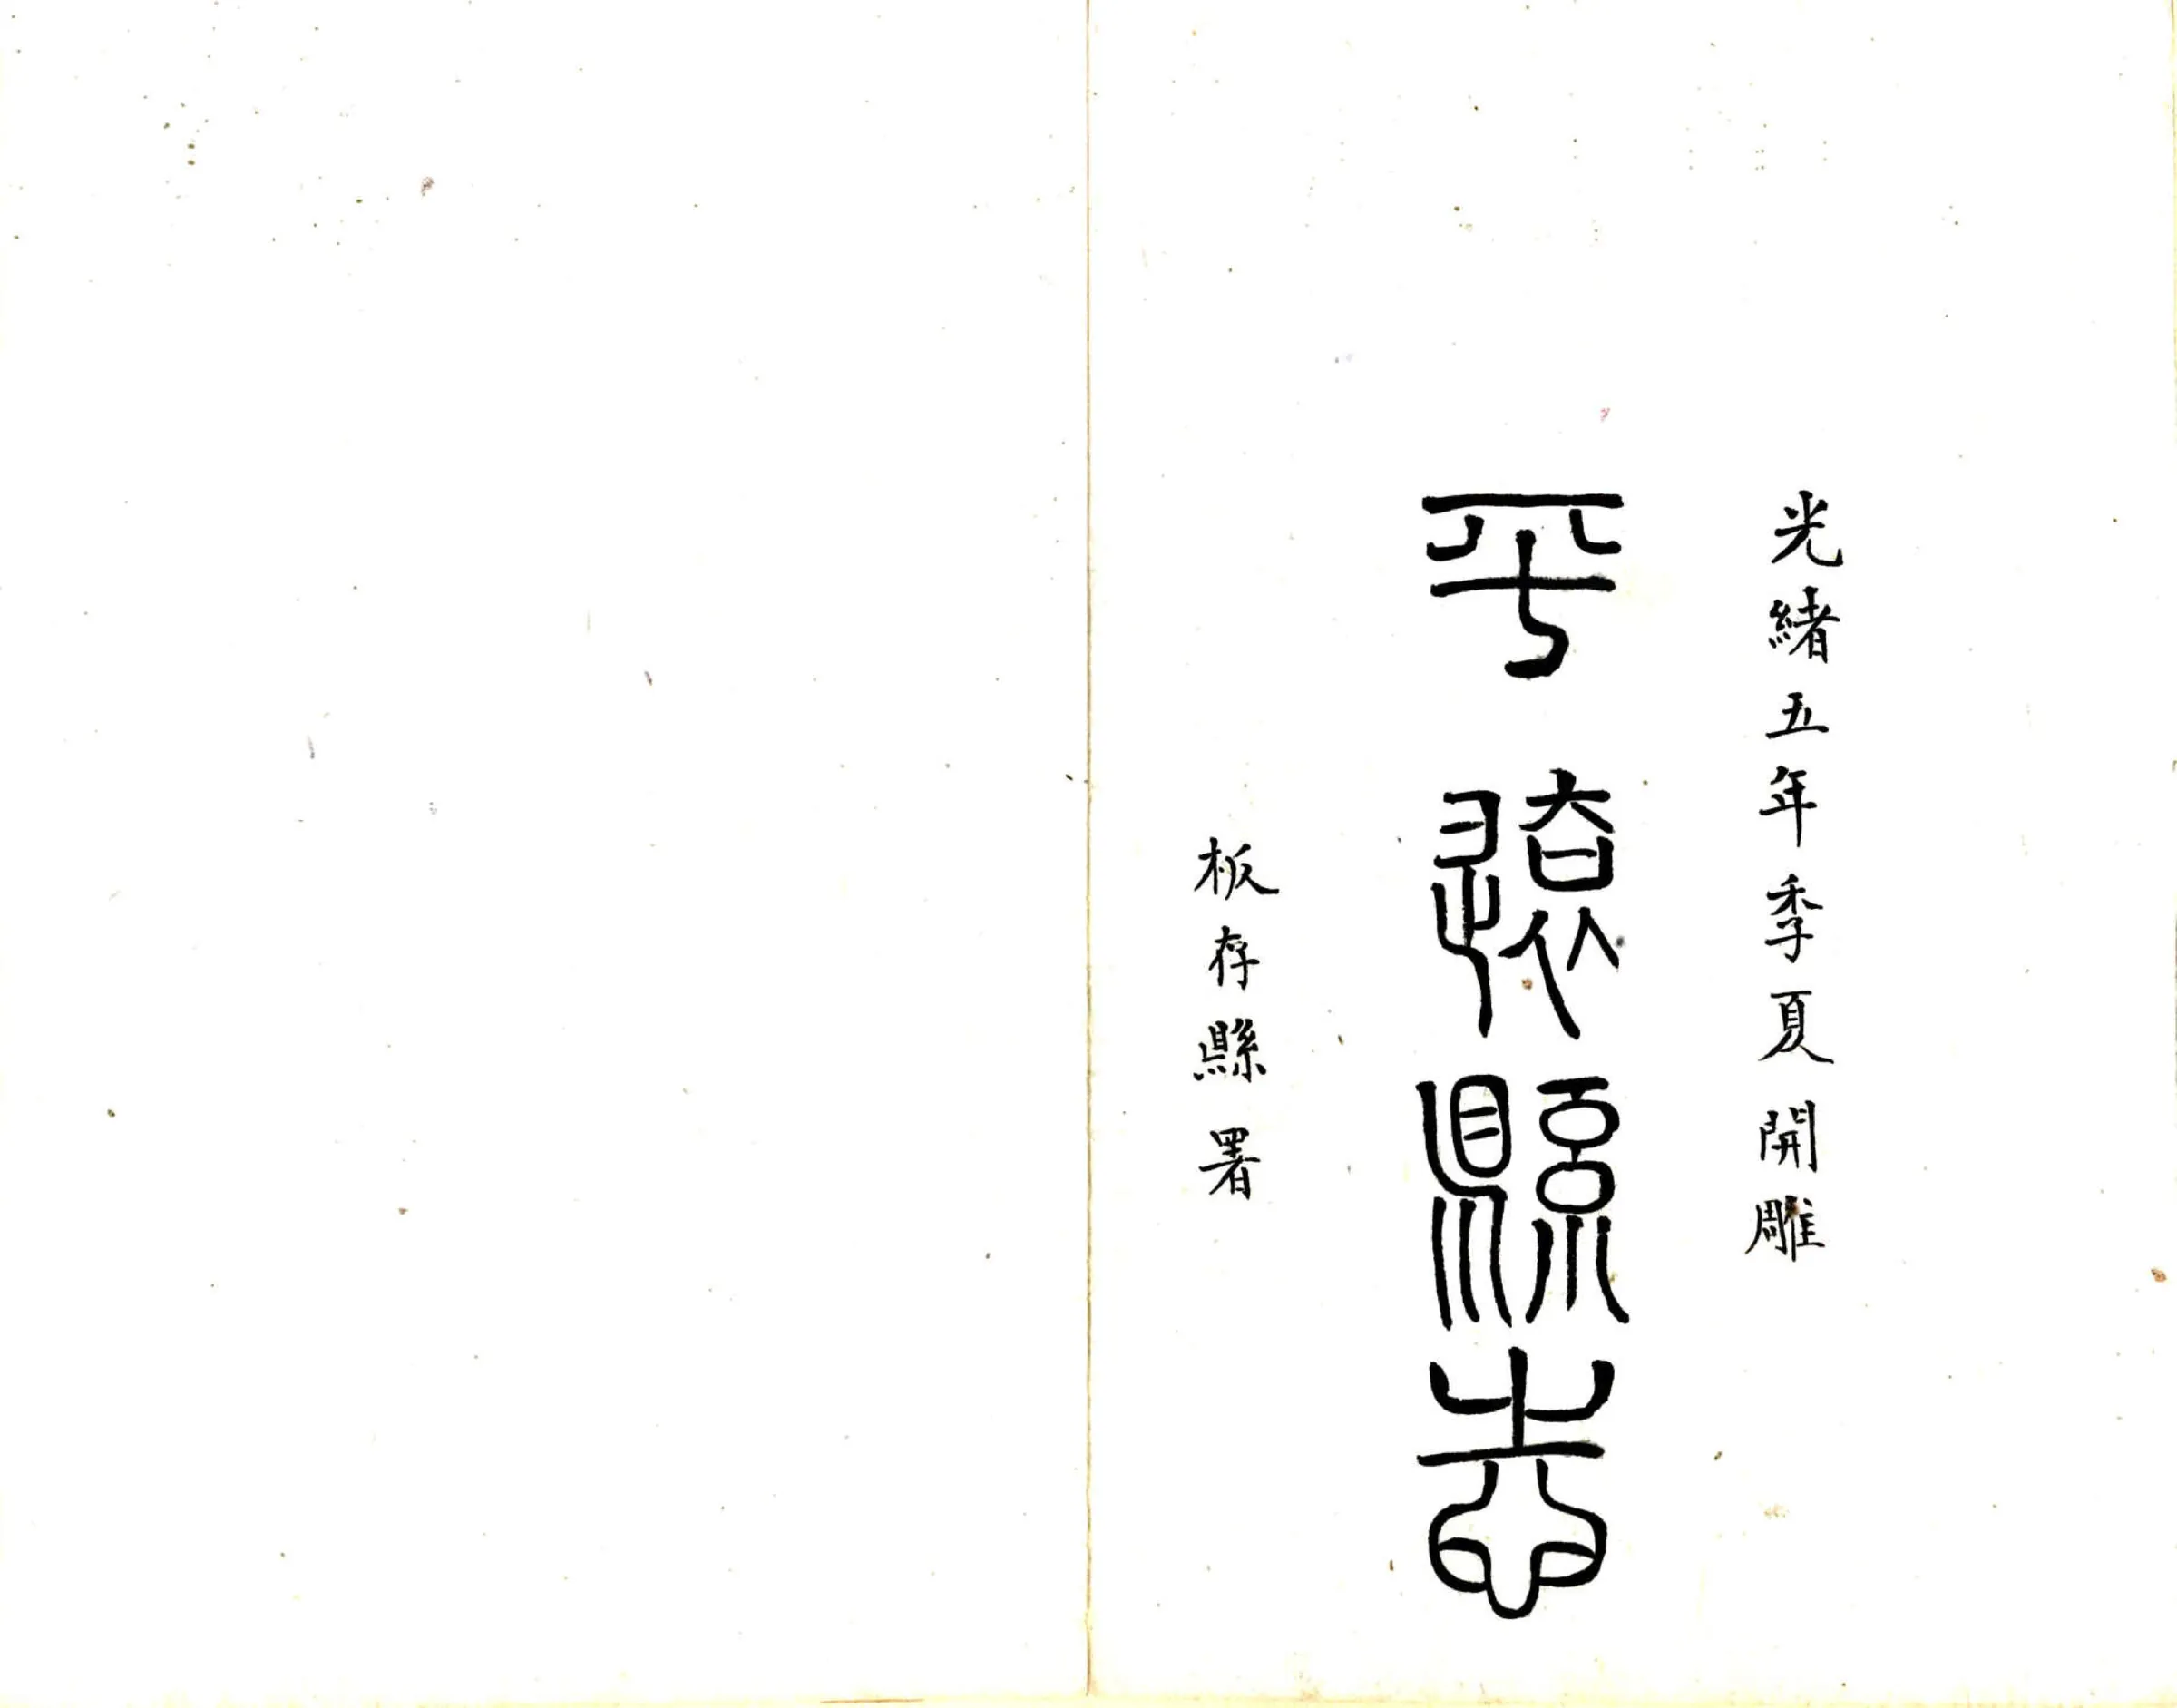 光緒五年季夏開雕
平遠縣志
板存縣署